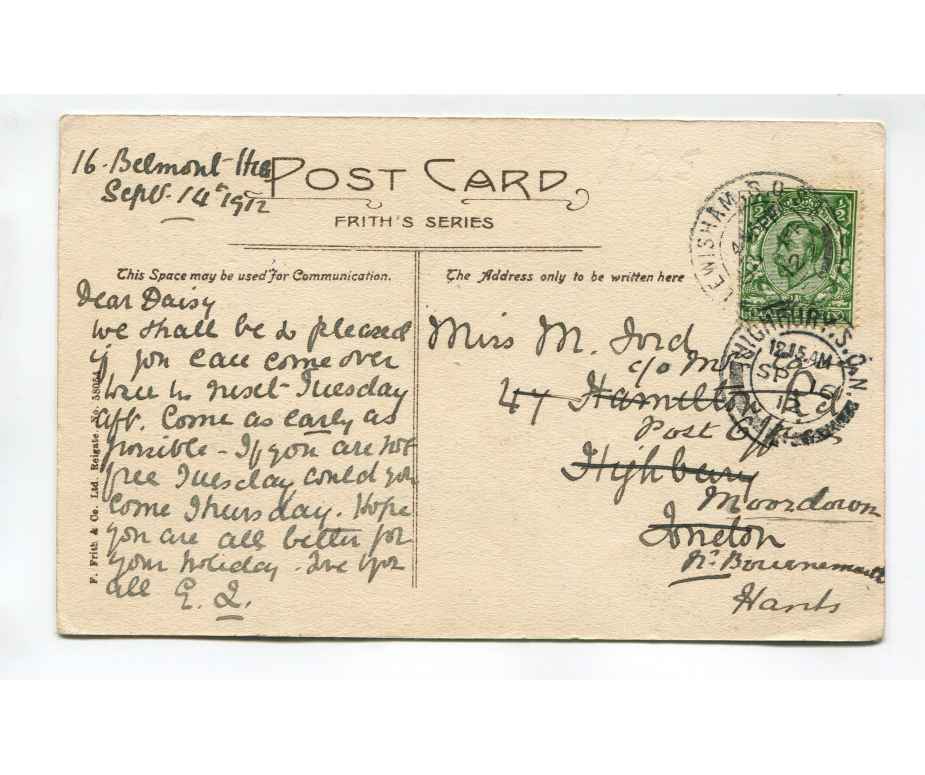 16. Belmont
Sept. 14th 1912
POST CARD
FRITH'S SERIES
This Space may be used for Communication.
The Address only to be written here
Dear Daisy
We shall be so pleased
if you can come over
here next Tuesday
aft. Come as early as
possible - If you are not
free Tuesday could you
come Thursday. Hope
you are all better for
your holiday. Love
all E. L.
F. Frith & Co. Ltd. Reigate. No.
Miss M. Ford
c/o
47 Hamilton Rd
Post Office
Highbury
Moordown
London
Nr. Bournemouth
Hants
LEWISHAM S.O.
1/2
HIGHBURY S.O. N.
12.15 AM
SP
12